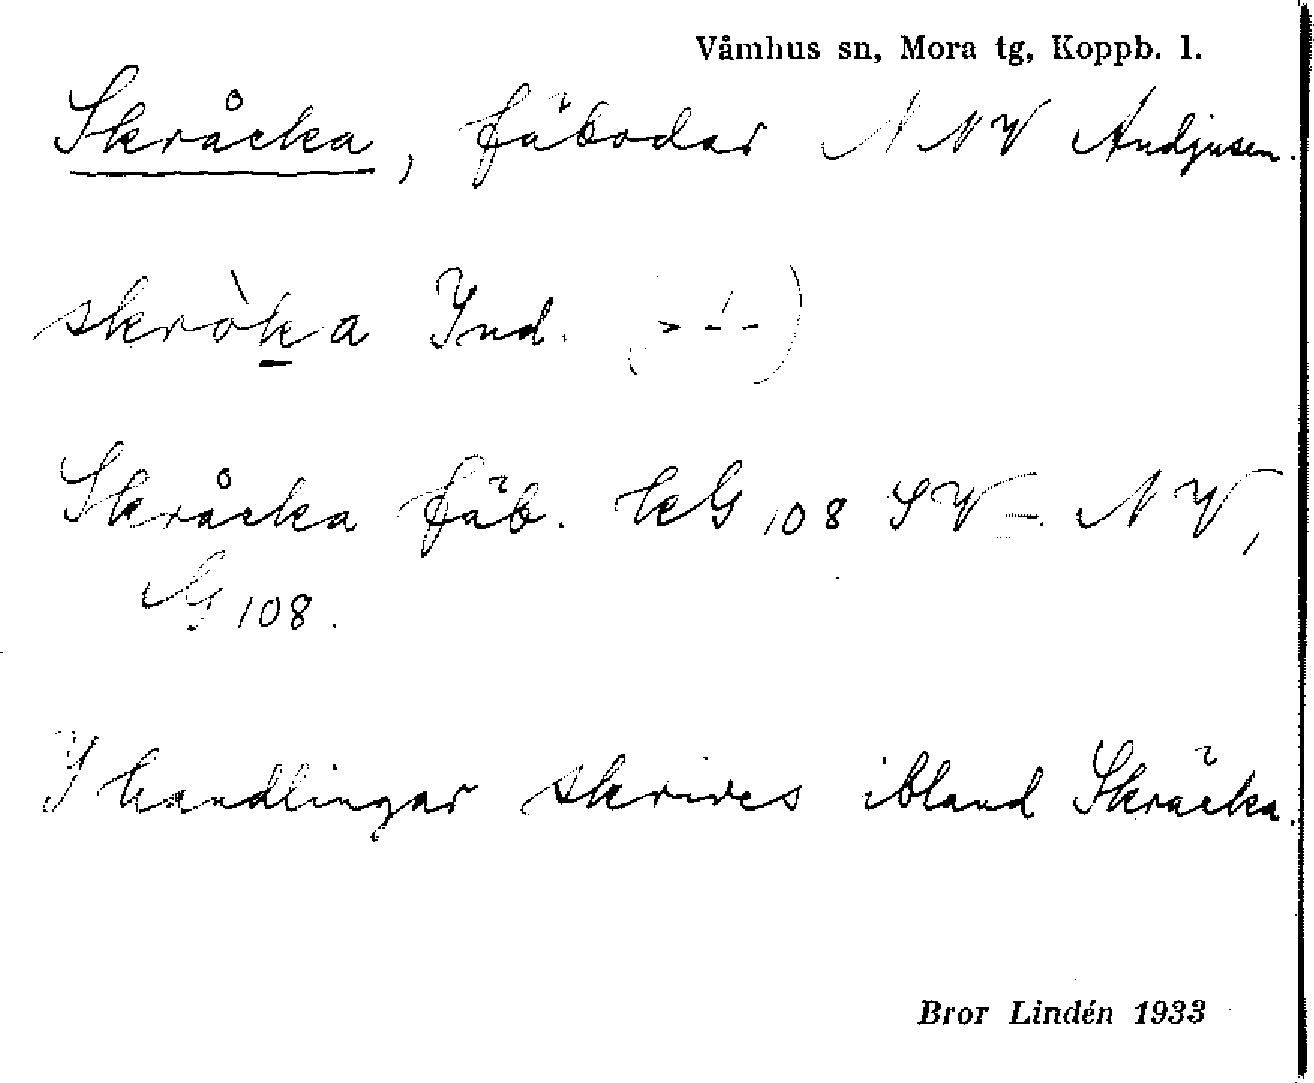 Våmhus sn, Mora tg, Koppb. l.
Skråcka, fäbodar NNV Andjusen.
skròka Ind. (> -́ -)
Skråcka fäb. kG 108 SV–NV,
G 108.
I handlingar skrives ibland Skräcka.
Bror Lindén 1933